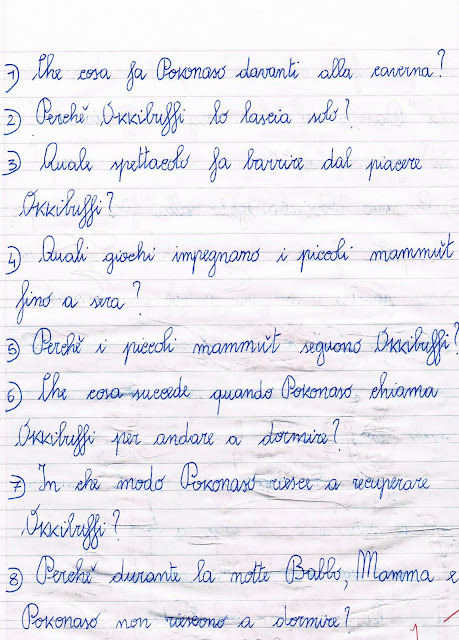 1) Che cosa fa Pokonaso davanti alla caverna?
2) Perchě Okkibuffi lo lascia solo?
3) Quale spettacolo fa barrire dal piacere
Okkibuffi?
4) Quali giochi impegnano i piccoli mammŭt
fino a sera?
5) Perchě i piccoli mammŭt seguono Okkibuffi?
6) Che cosa succede quando Pokonaso chiama
Okkibuffi per andare a dormire?
7) In che modo Pokonaso riesce a recuperare
Okkibuffi?
8) Perchě durante la notte Babbo, Mamma e
Pokonaso non riescono a dormire?